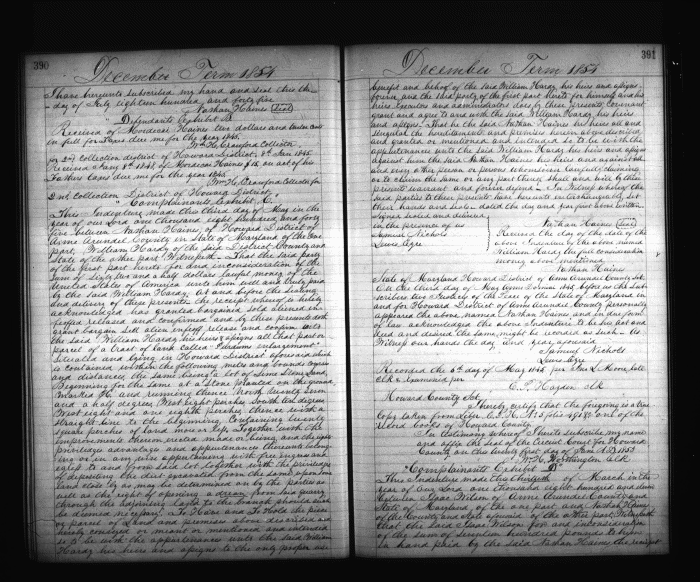 390
December Term 1854
I have hereunto subscribed my hand and seal this
day of July eighteen hundred and forty five
Nathan Haines (Seal)
Defendants Exhibit B.
Received of Mordecai Haines two dollars and
in full for Taxes due me for the year 1845
Wm H. Crawford Collector
for 2nd collection district of Howard District
Received of Mordecai Haines
Fathers Taxes due me for the year 1845
Wm H. Crawford Collector for
2nd collection District of Howard District
"Complainants Exhibit, C.
This Indenture made this third day of May in the
year of our Lord one thousand eight hundred and forty
five between Nathan Haines of Howard District of
Anne Arundel County in State of Maryland of the one
part, William Hardy of the said District County and
State of the other part Witnesseth - That the said party
of the first part hereto for and in consideration of the
sum of sixty two and half dollars lawful money of the
United States of America unto him well and truly paid
by the said William Hardy, at and before the sealing
and delivery of these presents the receipt whereof is hereby
acknowledged has granted bargained sold aliened en-
feoffed released and confirmed and by these presents doth
grant bargain sell alien enfeoff release and confirm unto
the said William Hardy his heirs & assigns all that part or
parcel of a tract of land called "Shaw
situated and lying in Howard District aforesaid which
is contained within the following metes and bounds courses
and distances the same being a lot of Lime Stone land
Beginning for the same at a Stone planted on the ground
marked H. and running thence North
and a half degrees West eight perches South ten degrees
West eight and one eighth perches thence with a
straight line to the beginning containing twenty
square perches of land more or less Together with the
improvements thereon erected made or being and the rights
privileges advantages and appurtenances thereunto belong
ing or in any wise appertaining with free ingress and
egress to and from said lot together with the privileges
of depositing the dirt excavated from the same, upon
and close by as may be determined on by the parties as
well as the right of opening a drean from said quarry
through the adjoining lands to the branch should such
be deemed necessary, To Have and To Hold the piece
or parcel of Land and premises above described and
hereby conveyed or meant or mentioned and intended
so to be with the appurtenances unto the said William
Hardy his heirs and assigns to the only proper use
391
December Term 1854
benefit and behoof of the said William Hardy his heirs and assigns
forever, and the said party of the first part hereto for himself and his
heirs Executors and administrators does by these presents Covenant
grant and agree to and with the said William Hardy his heirs
and assigns That he the said Nathan Haines his heirs all and
singular the hereditaments and premises herein above described
and granted or mentioned and intended so to be with the
appurtenances unto the said William Hardy his heirs and assigns
against him the said Nathan Haines his heirs and against all
and every other person or persons whomsoever lawfully claiming
or to claim the same or any part thereof shall and will by these
presents warrant and forever defend - In Witness whereof the
said parties to these presents have hereunto interchangeably set
their hands and seals dated the day and year first above written
Signed Sealed and delivered
in the presence of us
Samuel Nichols
Lewis
Nathan Haines (Seal)
Received the day of the date of the
above Indenture by the above named
William Hardy the full consideration
money above mentioned
Nathan Haines
State of Maryland Howard District of Anne Arundel County Sct.
On the third day of May Anno Domini 1845 before us the sub
scribers two Justices of the Peace of the State of Maryland in
and for Howard District of Anne Arundel County personally
appeared the above named Nathan Haines and in due form
of law acknowledged the above Indenture to be his act and
deed and desired the same might be recorded as such - As
Witness our hands the day and year aforesaid
Samuel Nichols
Lewis
Recorded the 6th day of May 1845 per
Clk & examined per
C. P. Hayden Clk
Howard County Sct,
I hereby certify that the foregoing is a true
copy taken from Liber folio one of the
Record books of Howard County.
In testimony whereof I hereto subscribe my name
and affix the seal of the Circuit Court for Howard
County on this twenty first day of Jan. A.D. 1853
Wm H. Worthington Clk
"Complainants Exhibit D"
This Indenture made this thirteenth of March in the
year of our Lord one thousand eight hundred and
between Isaac Wilson of Anne Arundel County and
State of Maryland of the one part and Nathan Haines
of the County and State aforesaid of the other part Witnesseth
that the said Isaac Wilson for and in consideration
of the sum of Seventeen hundred pounds to him
in hand paid by the said Nathan Haines the receipt